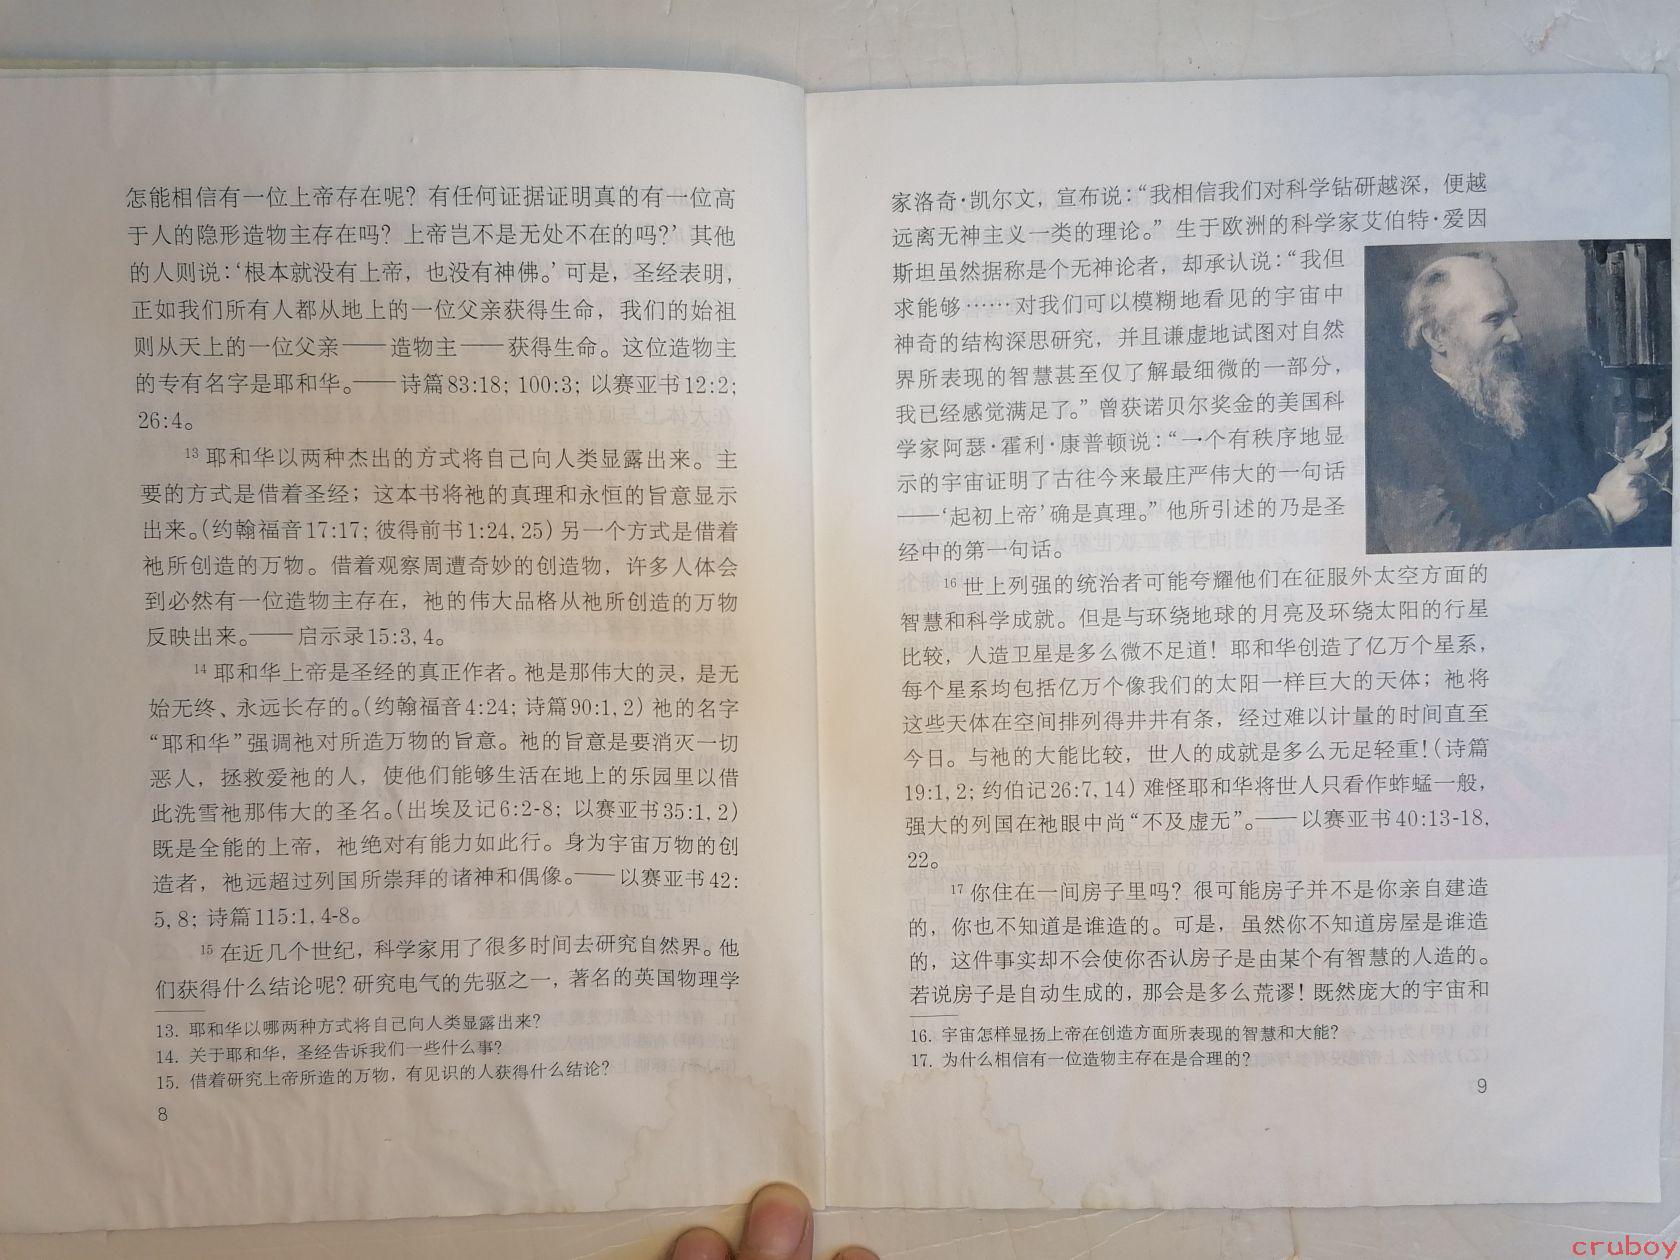 怎能相信有一位上帝存在呢？有任何证据证明真的有一位高
于人的隐形造物主存在吗？上帝岂不是无处不在的吗？’其他
的人则说：‘根本就没有上帝，也没有神佛。’可是，圣经表明，
正如我们所有人都从地上的一位父亲获得生命，我们的始祖
则从天上的一位父亲——造物主——获得生命。这位造物主
的专有名字是耶和华。——诗篇83:18；100:3；以赛亚书12:2；
26:4。
13 耶和华以两种杰出的方式将自己向人类显露出来。主
要的方式是借着圣经；这本书将祂的真理和永恒的旨意显示
出来。（约翰福音17:17；彼得前书1:24,25）另一个方式是借着
祂所创造的万物。借着观察周遭奇妙的创造物，许多人体会
到必然有一位造物主存在，祂的伟大品格从祂所创造的万物
反映出来。——启示录15:3,4。
14 耶和华上帝是圣经的真正作者。祂是那伟大的灵，是无
始无终、永远长存的。（约翰福音4:24；诗篇90:1,2）祂的名字
“耶和华”强调祂对所造万物的旨意。祂的旨意是要消灭一切
恶人，拯救爱祂的人，使他们能够生活在地上的乐园里以借
此洗雪祂那伟大的圣名。（出埃及记6:2-8；以赛亚书35:1,2）
既是全能的上帝，祂绝对有能力如此行。身为宇宙万物的创
造者，祂远超过列国所崇拜的诸神和偶像。——以赛亚书42:
5,8；诗篇115:1,4-8。
15 在近几个世纪，科学家用了很多时间去研究自然界。他
们获得什么结论呢？研究电气的先驱之一，著名的英国物理学
13. 耶和华以哪两种方式将自己向人类显露出来？
14. 关于耶和华，圣经告诉我们一些什么事？
15. 借着研究上帝所造的万物，有见识的人获得什么结论？
8
家洛奇·凯尔文，宣布说：“我相信我们对科学钻研越深，便越
远离无神主义一类的理论。”生于欧洲的科学家艾伯特·爱因
斯坦虽然据称是个无神论者，却承认说：“我但
求能够……对我们可以模糊地看见的宇宙中
神奇的结构深思研究，并且谦虚地试图对自然
界所表现的智慧甚至仅了解最细微的一部分，
我已经感觉满足了。”曾获诺贝尔奖金的美国科
学家阿瑟·霍利·康普顿说：“一个有秩序地显
示的宇宙证明了古往今来最庄严伟大的一句话
——‘起初上帝’确是真理。”他所引述的乃是圣
经中的第一句话。
16 世上列强的统治者可能夸耀他们在征服外太空方面的
智慧和科学成就。但是与环绕地球的月亮及环绕太阳的行星
比较，人造卫星是多么微不足道！耶和华创造了亿万个星系，
每个星系均包括亿万个像我们的太阳一样巨大的天体；祂将
这些天体在空间排列得井井有条，经过难以计量的时间直至
今日。与祂的大能比较，世人的成就是多么无足轻重！（诗篇
19:1,2；约伯记26:7,14）难怪耶和华将世人只看作蚱蜢一般，
强大的列国在祂眼中尚“不及虚无”。——以赛亚书40:13-18,
22。
17 你住在一间房子里吗？很可能房子并不是你亲自建造
的，你也不知道是谁造的。可是，虽然你不知道房屋是谁造
的，这件事实却不会使你否认房子是由某个有智慧的人造的。
若说房子是自动生成的，那会是多么荒谬！既然庞大的宇宙和
16. 宇宙怎样显扬上帝在创造方面所表现的智慧和大能？
17. 为什么相信有一位造物主存在是合理的？
9
cruboy